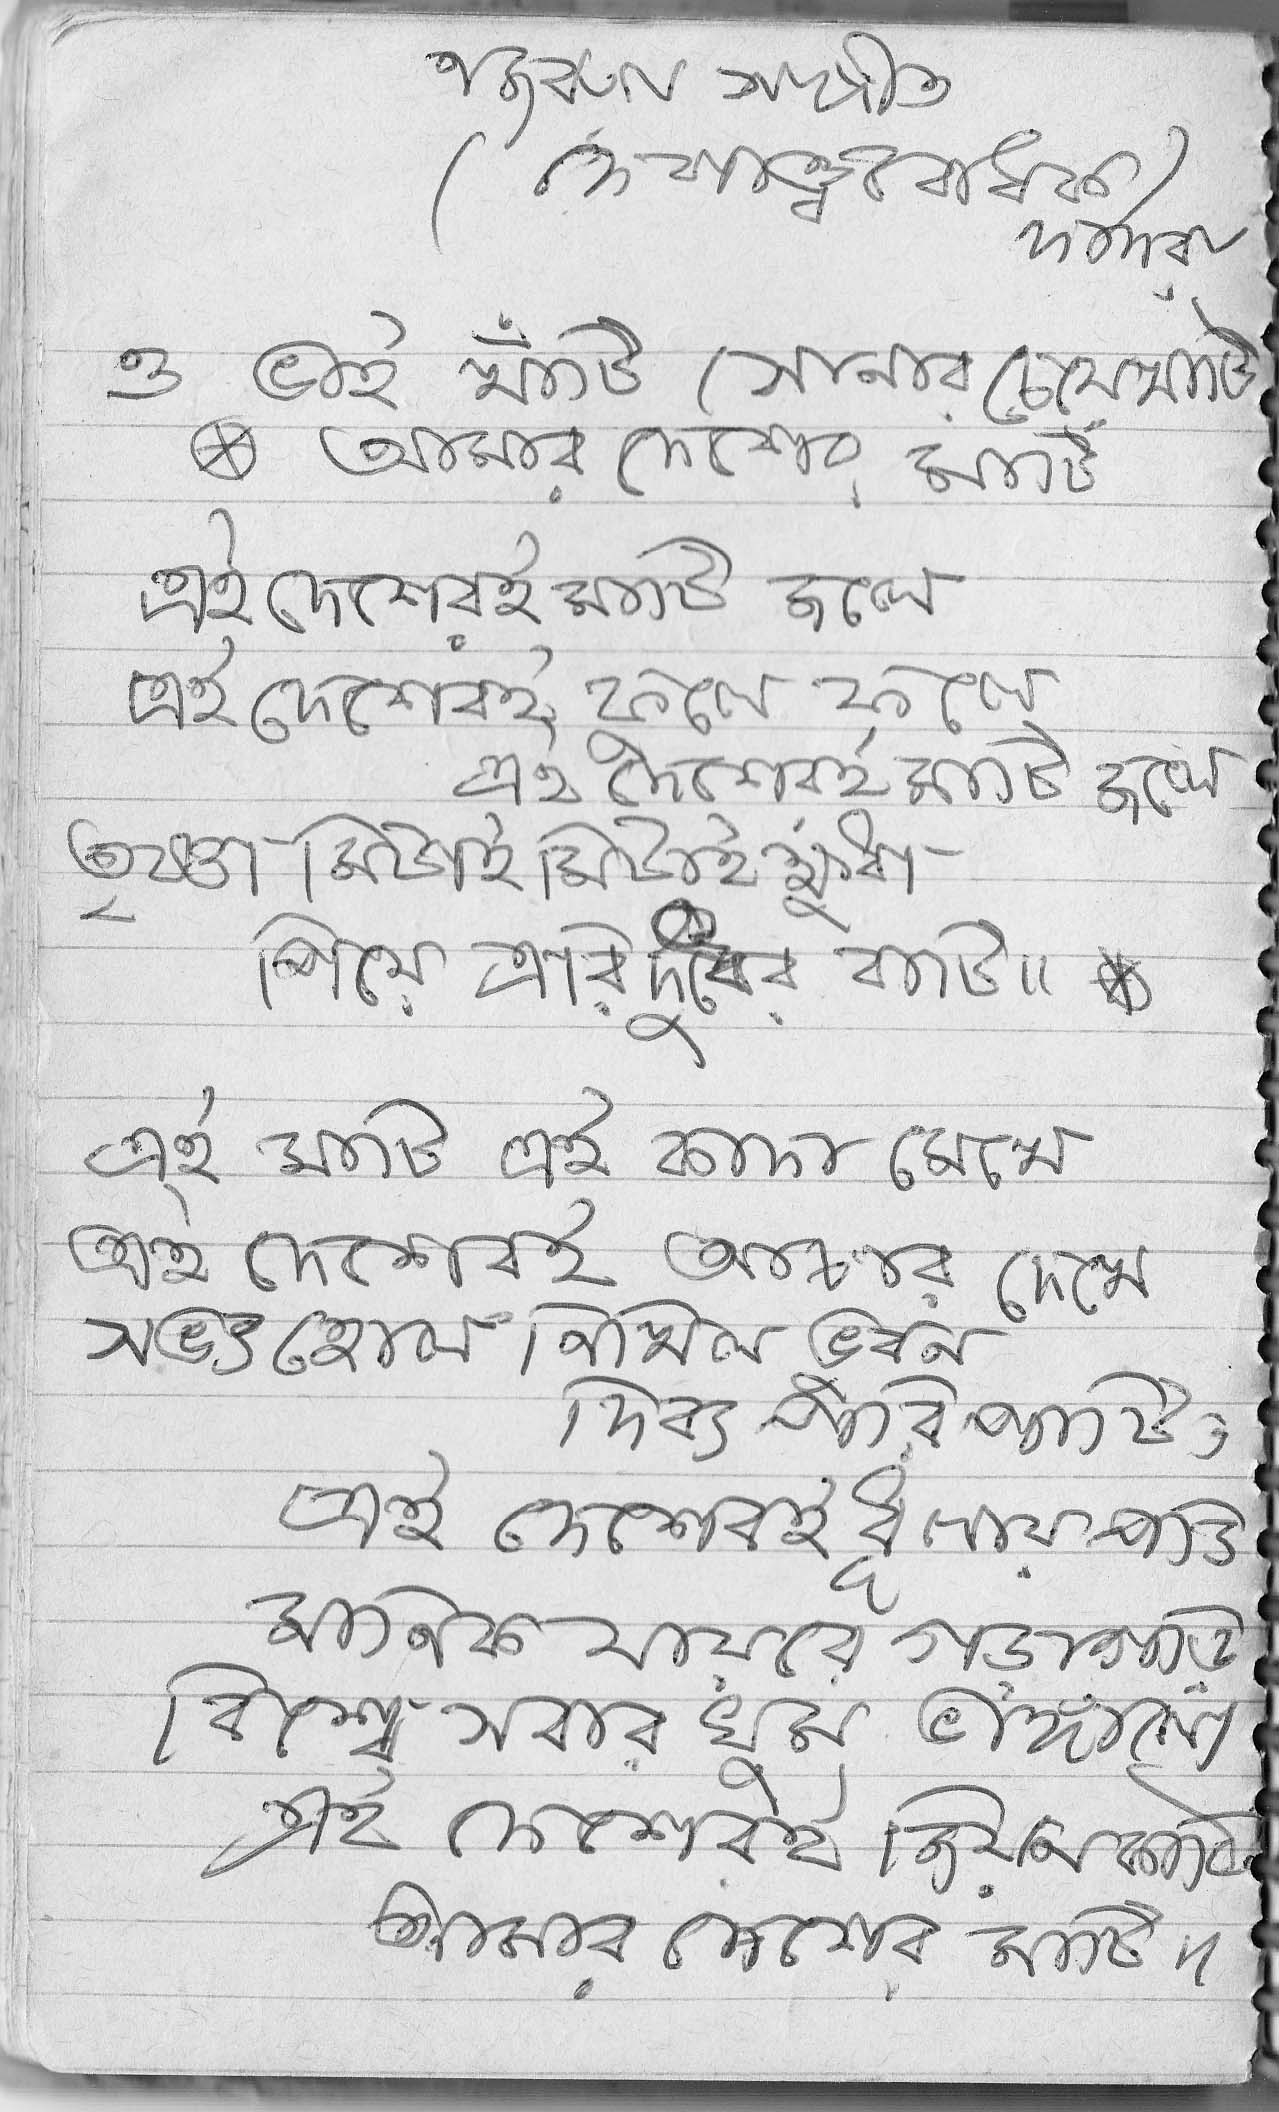 নজরুল সংগীত
(দেশাত্ববোধক)
দাদরা
ও ভাই খাঁটি সোনার চেয়ে খাটি
আমার দেশের মাটি
এই দেশেরই মাটি জলে
এই দেশেরই ফুলে ফলে
এই দেশেরই মাটি জলে
তৃষ্ণা মিটাই মিটাই ক্ষুধা
পিয়ে এরি দুধের বাটি॥
এই মাটি এই কাদা মেখে
এই দেশেরই আচার দেখে
সভ্য হোল নিখিল ভূবন
দিব্য পরিপাটি,
এই দেশেরই ধূলায় পড়ি
মানিক যায়রে গড়াগড়ি
বিশ্বে সবার ঘুম ভাঙ্গালো
এই দেশেরই জিয়ন কাঠি
আমার দেশের মাটি॥